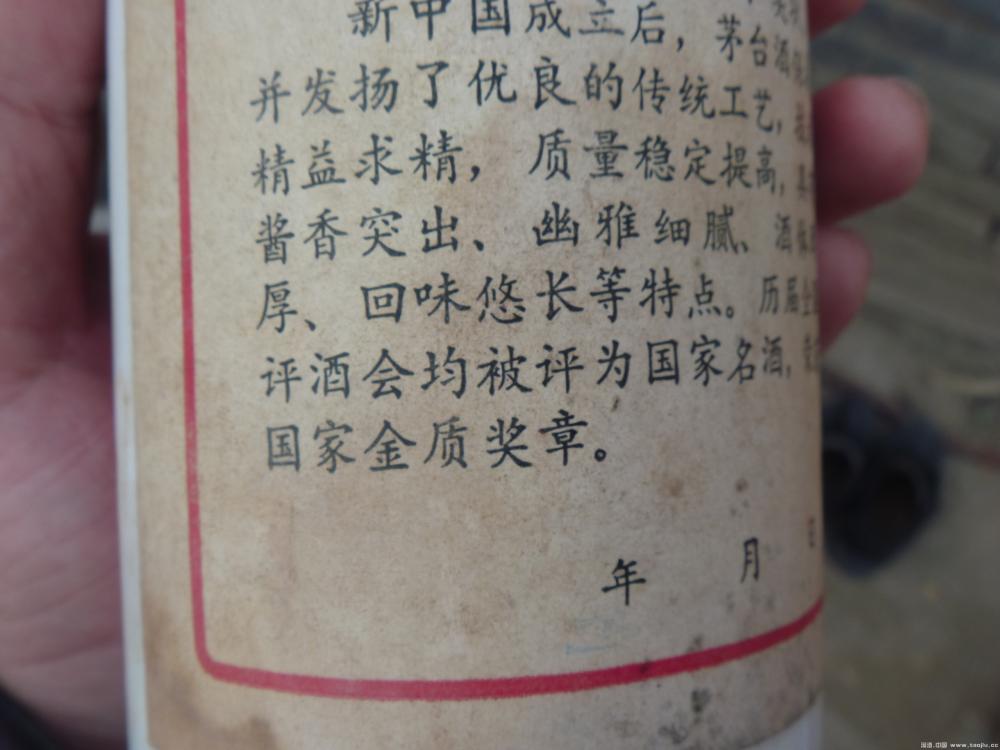 新中国成立后，茅台酒
并发扬了优良的传统工艺，
精益求精，质量稳定提高，具
酱香突出、幽雅细腻、酒
厚、回味悠长等特点。历届全
评酒会均被评为国家名酒，
国家金质奖章。
年 月 日
淘酒.中国 www.taojiu.cc